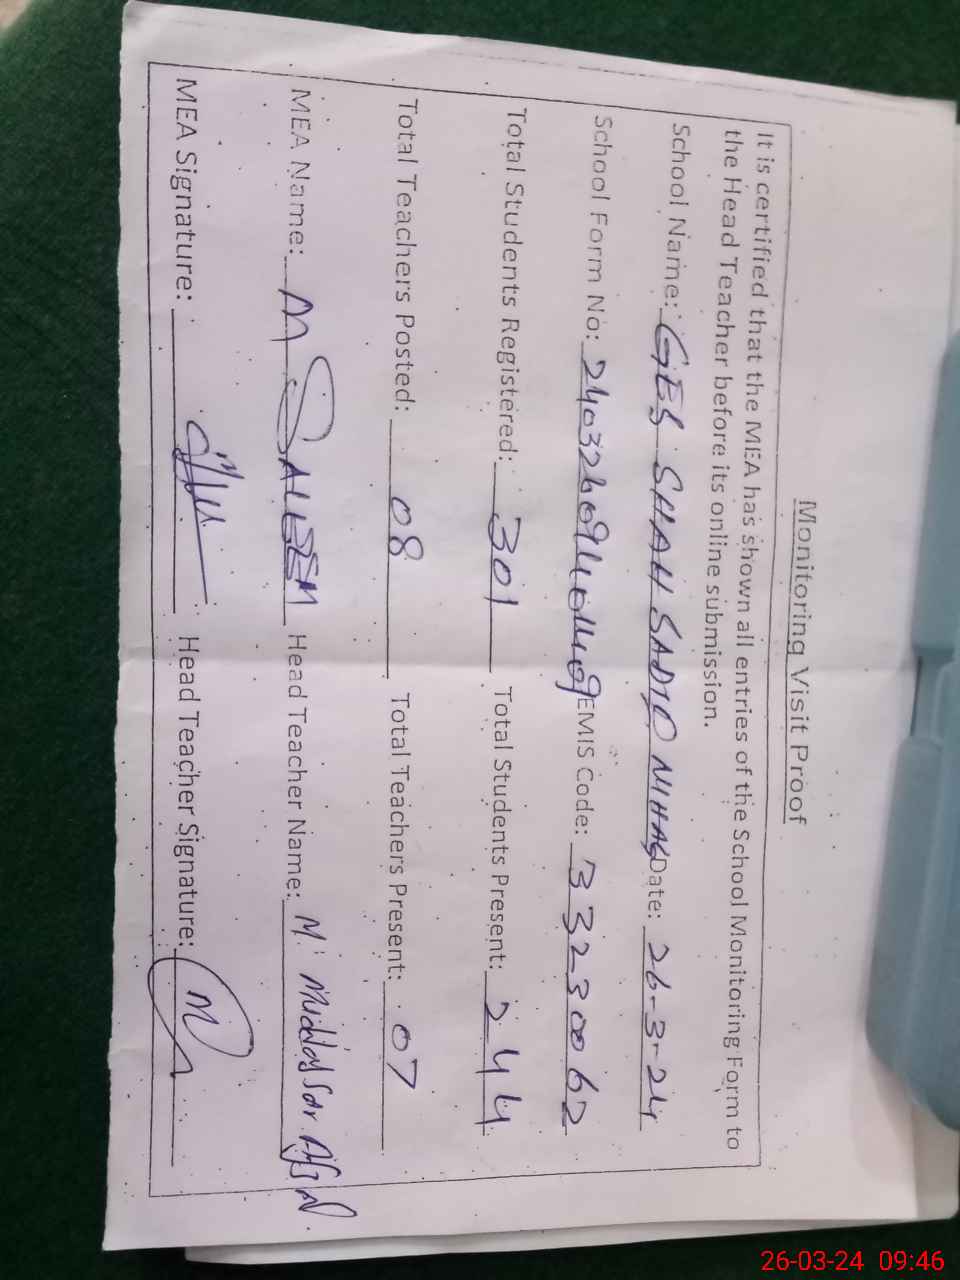 Monitoring Visit Proof
It is certified that the MEA has shown all entries of the School Monitoring Form to
the Head Teacher before its online submission.
School Name: GES SHAH SADIQ NIHAG Date: 26-3-24
School Form No: EMIS Code: 33230062
Total Students Registered: 301 Total Students Present: 244
Total Teachers Posted: 08 Total Teachers Present: 07
MEA Name: M SALEEM Head Teacher Name: M. Muddassar
MEA Signature: Head Teacher Signature:
26-03-24 09:46